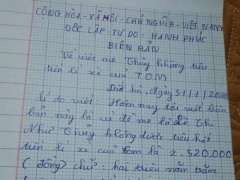 CỘNG HÒA - XÃ HỘI - CHỦ NGHĨA - VIỆT NAM
ĐỘC LẬP - TỰ DO - HẠNH PHÚC
BIÊN BẢN
Về việc mẹ Thủy không tiêu
tiền lì xì của TOM
Hà nội, Ngày 31/1/20
lí do viết: Hôm nay tôi viết biên
bản này là vì để mẹ bé
Như Thủy không được tiêu hết
tiền lì xì của em là 2.520.000
(đồng) chữ hai triệu năm trăm